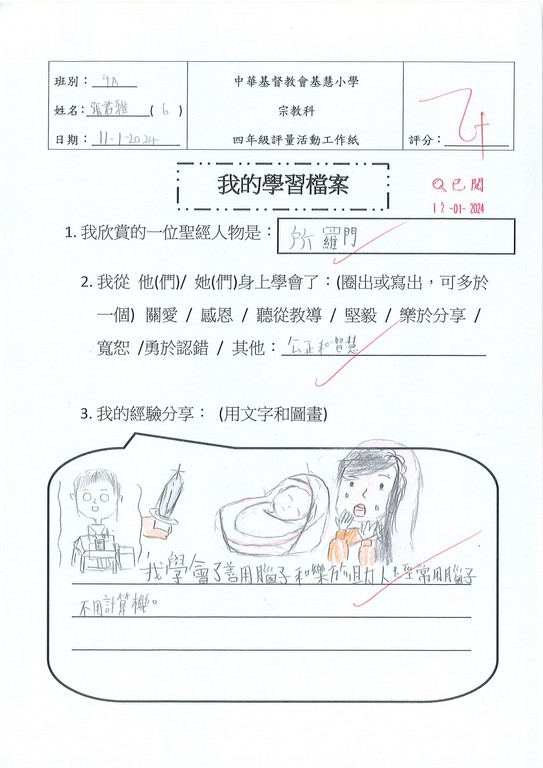 班別：4A
姓名：張君雅(6)
日期：11-1-2024
中華基督教會基慧小學
宗教科
四年級評量活動工作紙
評分：乙+
我的學習檔案
已閱
12-01-2024
1. 我欣賞的一位聖經人物是：所羅門
2. 我從 他(們)/ 她(們)身上學會了：(圈出或寫出，可多於
一個) 關愛 / 感恩 / 聽從教導 / 堅毅 / 樂於分享 /
寬恕 /勇於認錯 / 其他：公正和智慧
3. 我的經驗分享： (用文字和圖畫)
我學會了善用腦子和樂於助人經常用腦子
不用計算機。